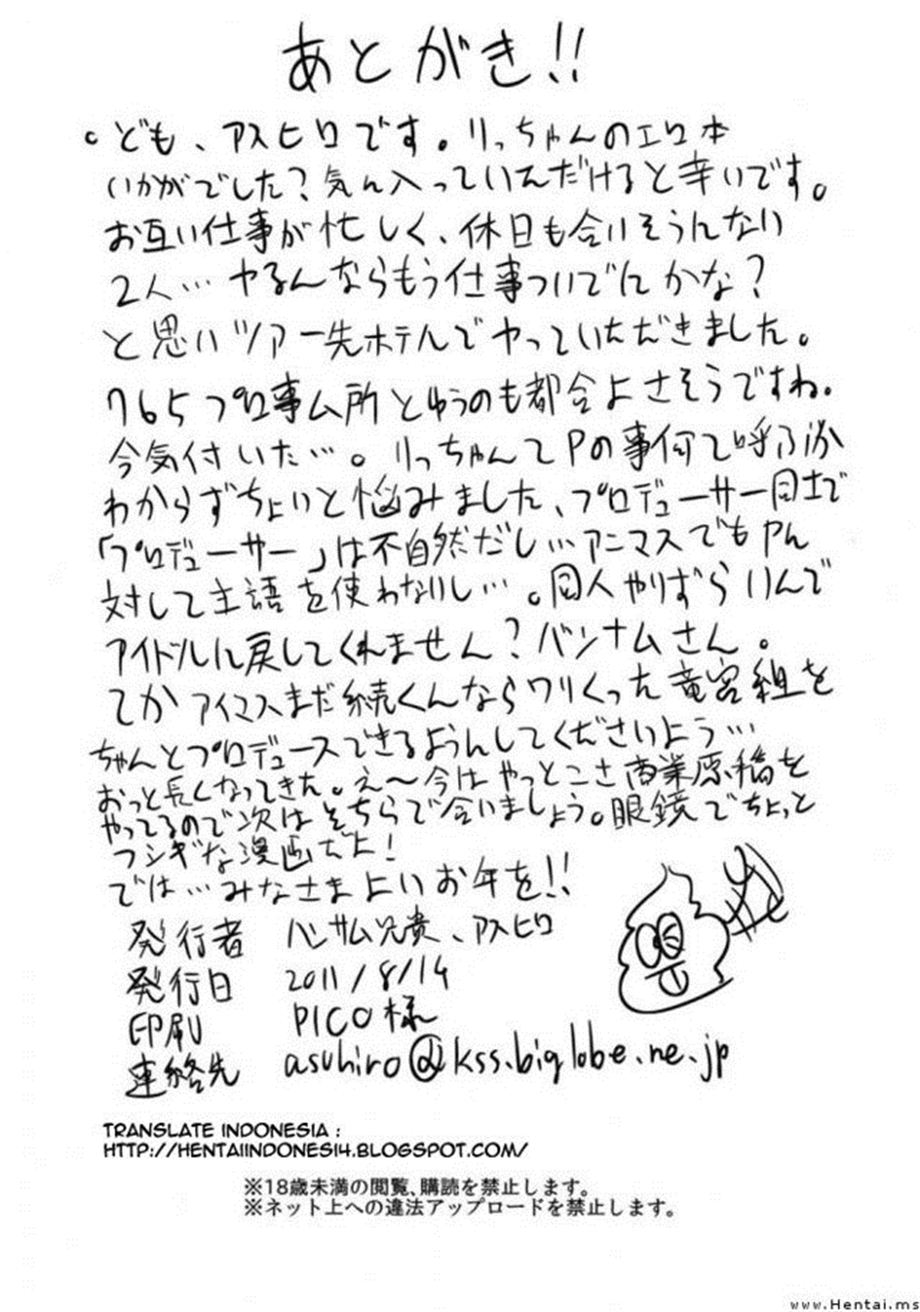 あとがき!!
。ども、アスヒロです。りっちゃんのエロ本
いかがでした?気に入っていただけると幸いです。
お互い仕事が忙しく、休日も合いそうにない
2人…ヤるんならもう仕事ついでにかな?
と思いツアー先ホテルでヤっていただきました。
765プロ事ム所とゆうのも都合よさそうですね。
今気付いた…。りっちゃんてPの事何て呼ぶか
わからずちょいと悩みました、プロデューサー同士で
「プロデューサー」は不自然だし…アニマスでもPに
対して主語を使わないし…。同人やりずらいんで
アイドルに戻してくれません?バンナムさん。
てかアイマスまだ続くんなら
竜宮組を
ちゃんとプロデュースできるようにしてくださいよう…
おっと長くなってきた。え〜今はやっとこさ商業原稿を
やってるので次はそちらで会いましょう。眼鏡でちょっと
フシギな漫画だよ!
では…みなさまよいお年を!!
発行者 ハンサム兄貴、アスヒロ
発行日 2011/8/14
印刷 PICO様
連絡先 asuhiro@kss.biglobe.ne.jp
TRANSLATE INDONESIA :
HTTP://HENTAIINDONESI4.BLOGSPOT.COM/
※18歳未満の閲覧、購読を禁止します。
※ネット上への違法アップロードを禁止します。
www.Hentai.ms